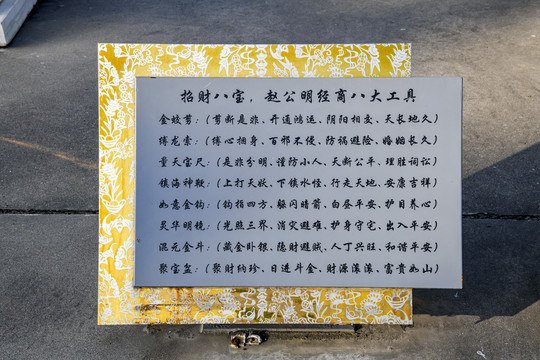 招财八宝，赵公明经商八大工具
金蛟剪：（剪断是非、开通鸿运、阴阳相交、天长地久）
缚龙索：（缚心捆身、百邪不侵、防祸避险、婚姻长久）
量天宝尺：（是非分明、谨防小人、天断公平、理胜词讼）
镇海神鞭：（上打天妖、下镇水怪、行走天地、安康吉祥）
如意金钩：（钩指四方、躲闪暗箭、白昼平安、护目养心）
灵华明镜：（光照三界、消灾避难、护身守宅、出入平安）
混元金斗：（藏金卧银、隐财避贼、人丁兴旺、和谐平安）
聚宝盆：（聚财纳珍、日进斗金、财源滚滚、富贵如山）